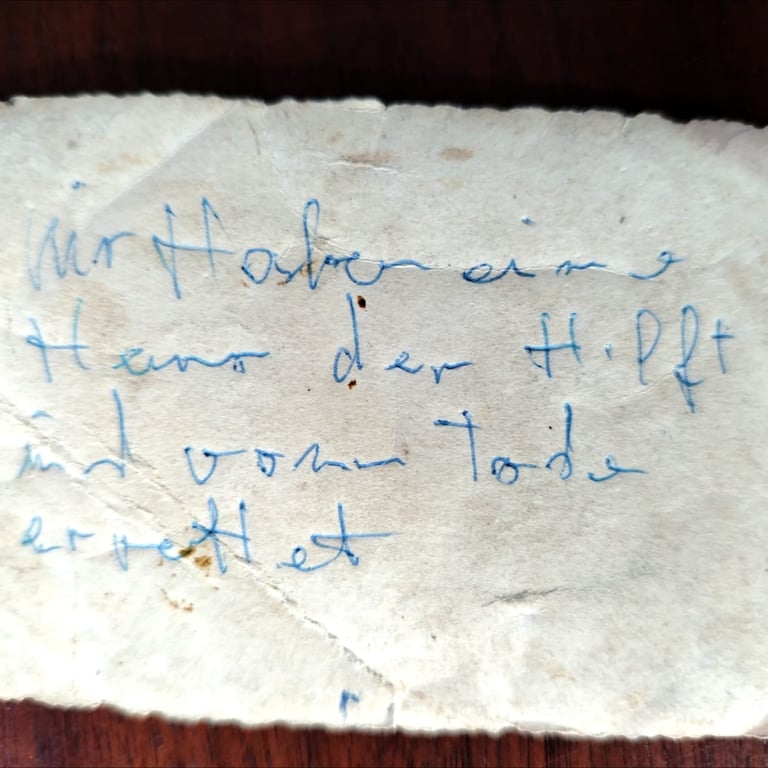 Wir Haben eine
Herrn der Hilft
und vom Tode
errettet